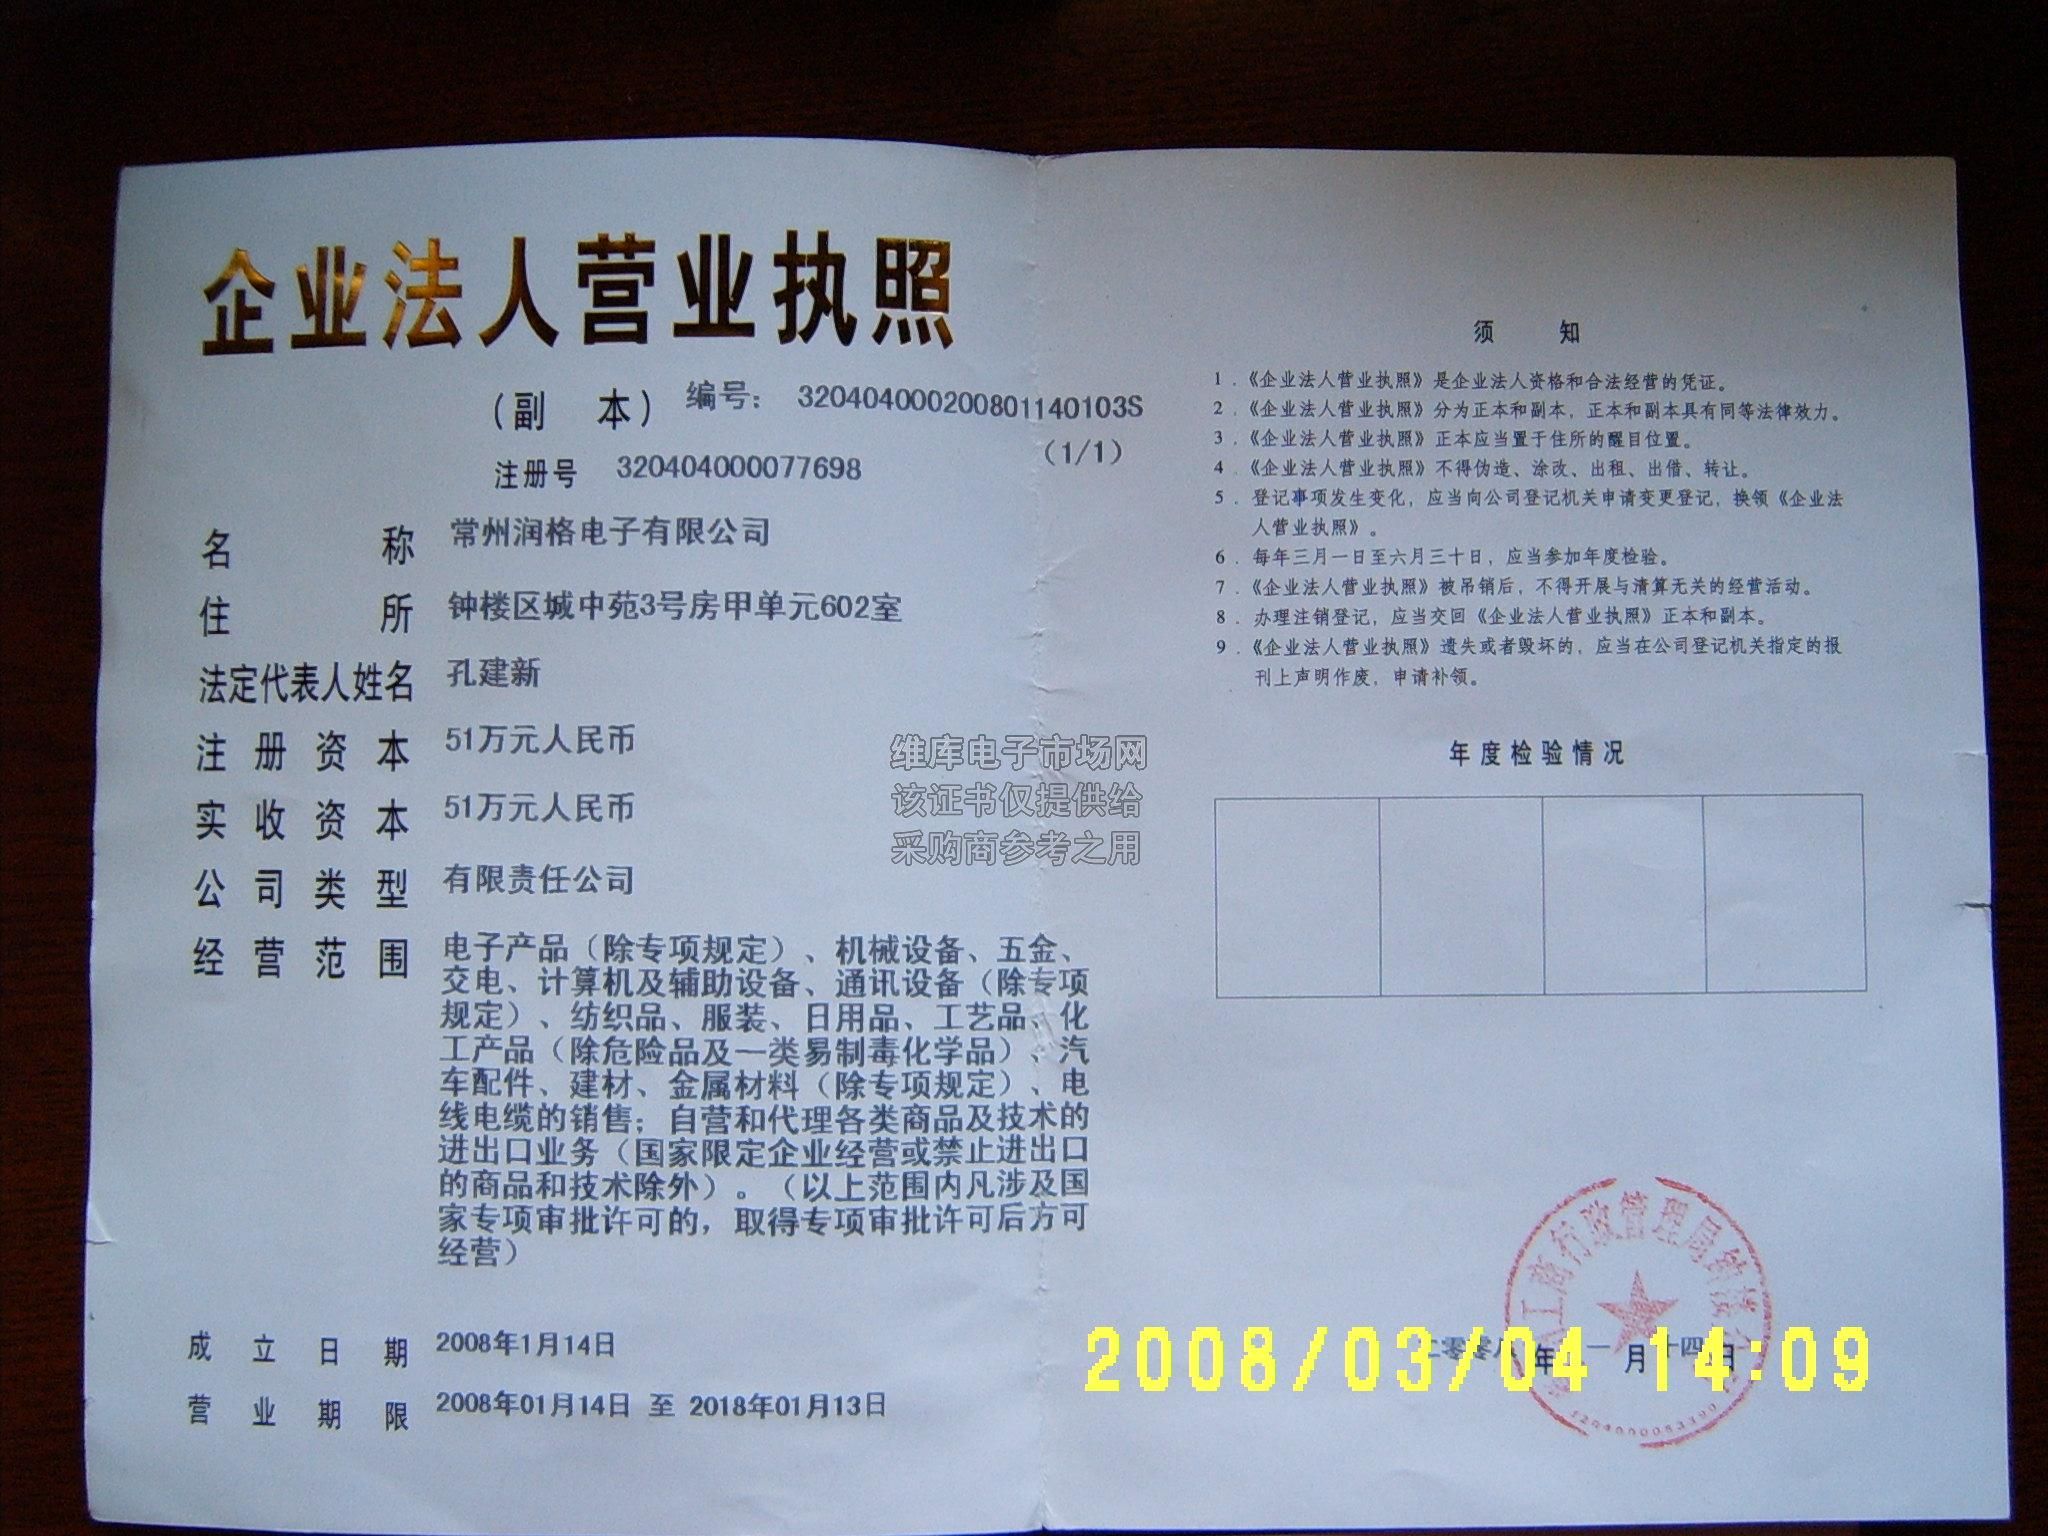 企业法人营业执照
（副 本） 编号： 320404000200801140103S
（1/1）
注册号 320404000077698
名称 常州润格电子有限公司
住所 钟楼区城中苑3号房甲单元602室
法定代表人姓名 孔建新
注册资本 51万元人民币
实收资本 51万元人民币
公司类型 有限责任公司
经营范围 电子产品（除专项规定）、机械设备、五金、
交电、计算机及辅助设备、通讯设备（除专项
规定）、纺织品、服装、日用品、工艺品、化
工产品（除危险品及一类易制毒化学品）、汽
车配件、建材、金属材料（除专项规定）、电
线电缆的销售；自营和代理各类商品及技术的
进出口业务（国家限定企业经营或禁止进出口
的商品和技术除外）。（以上范围内凡涉及国
家专项审批许可的，取得专项审批许可后方可
经营）
成立日期 2008年1月14日
营业期限 2008年01月14日 至 2018年01月13日
维库电子市场网
该证书仅提供给
采购商参考之用
须 知
1．《企业法人营业执照》是企业法人资格和合法经营的凭证。
2．《企业法人营业执照》分为正本和副本，正本和副本具有同等法律效力。
3．《企业法人营业执照》正本应当置于住所的醒目位置。
4．《企业法人营业执照》不得伪造、涂改、出租、出借、转让。
5．登记事项发生变化，应当向公司登记机关申请变更登记，换领《企业法
人营业执照》。
6．每年三月一日至六月三十日，应当参加年度检验。
7．《企业法人营业执照》被吊销后，不得开展与清算无关的经营活动。
8．办理注销登记，应当交回《企业法人营业执照》正本和副本。
9．《企业法人营业执照》遗失或者毁坏的，应当在公司登记机关指定的报
刊上声明作废，申请补领。
年度检验情况
工商行政管理局钟楼
二零零八年一月十四日
2008/03/04 14:09